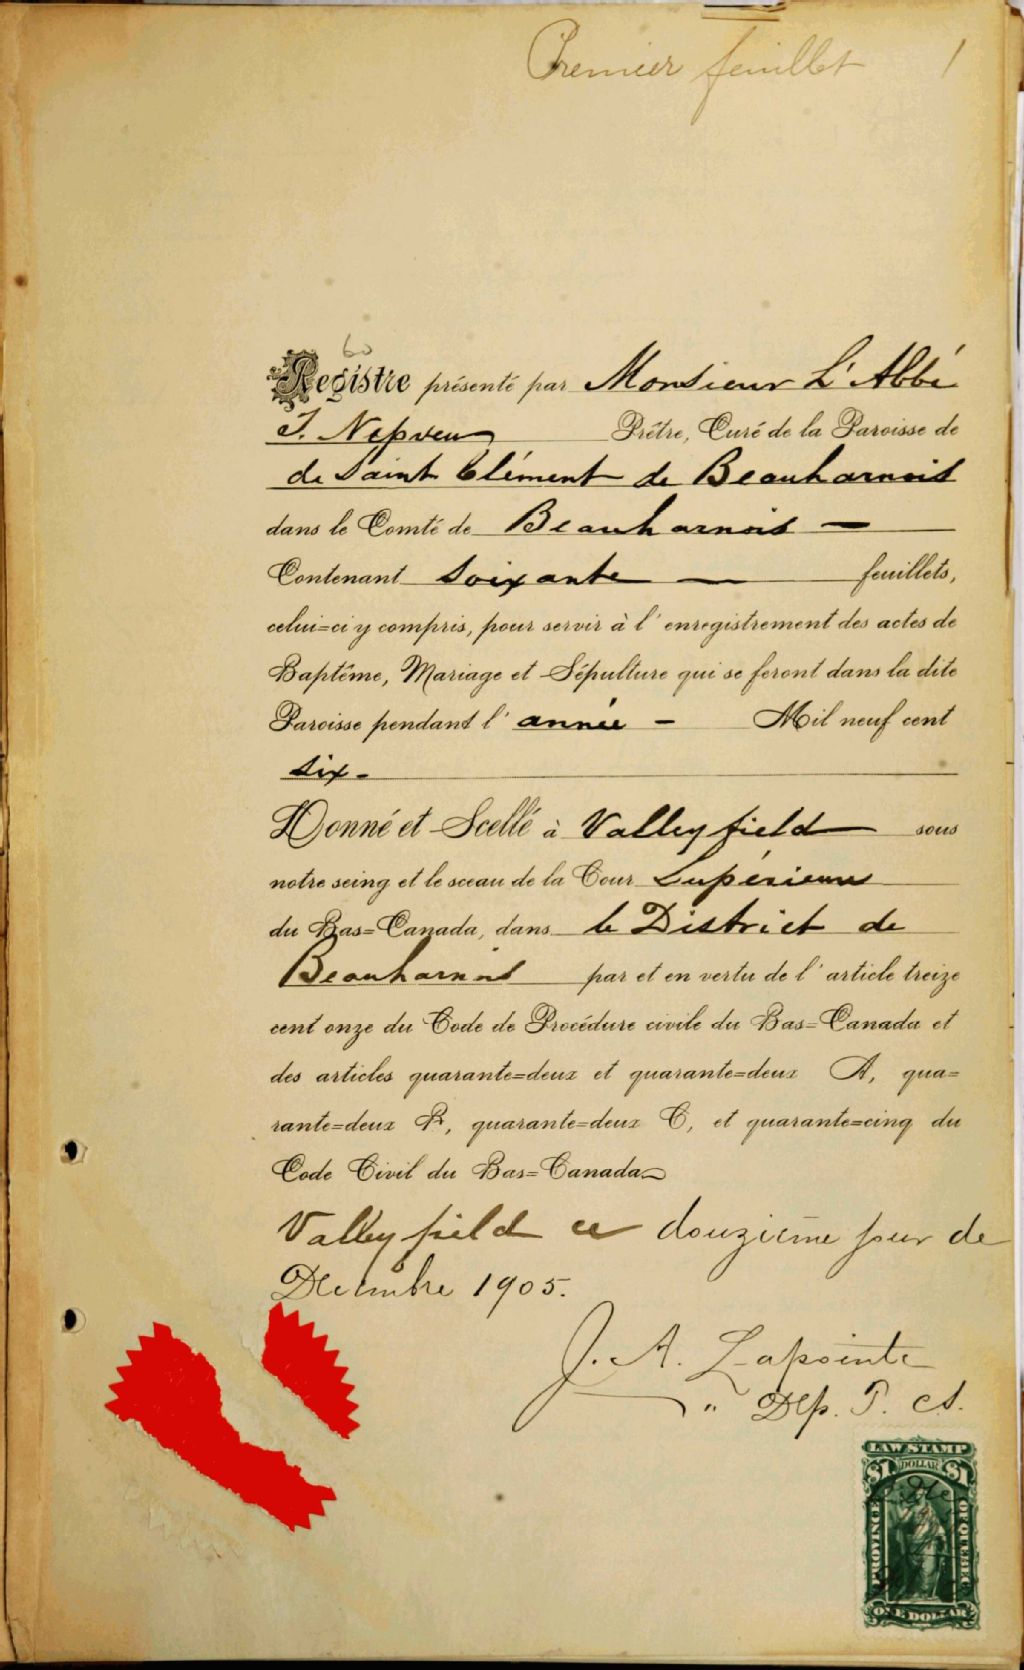 Premier feuillet 1
60
Registre présenté par Monsieur L'Abbé
J. Nepveu Prêtre, Curé de la Paroisse de
de Saint Clément de Beauharnois
dans le Comté de Beauharnois —
Contenant soixante — feuillets,
celui=ci y compris, pour servir à l'enregistrement des actes de
Baptême, Mariage et Sépulture qui se feront dans la dite
Paroisse pendant l'année - Mil neuf cent
six -
Donné et Scellé à Valleyfield sous
notre seing et le sceau de la Cour Supérieure
du Bas=Canada, dans le District de
Beauharnois par et en vertu de l'article treize
cent onze du Code de Procédure civile du Bas=Canada et
des articles quarante=deux et quarante=deux A, qua=
rante=deux B, quarante=deux C, et quarante=cinq du
Code Civil du Bas=Canada
Valleyfield ce douzième jour de
Decembre 1905.
J. A. Lapointe
" Dép. P. C. S.
LAW STAMP
$1 DOLLAR $1
PROVINCE OF QUEBEC
ONE DOLLAR